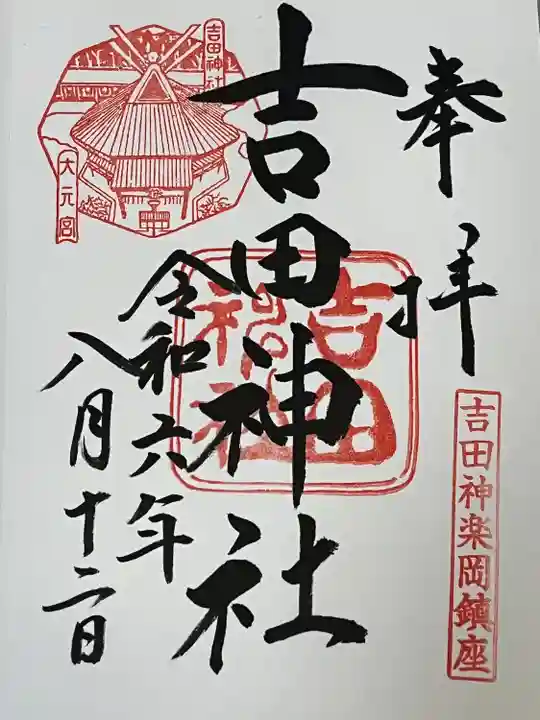 奉拝
吉田神楽岡鎮座
吉田神社
吉田
神社
令和六年
八月十二日
吉田神社
大元宮